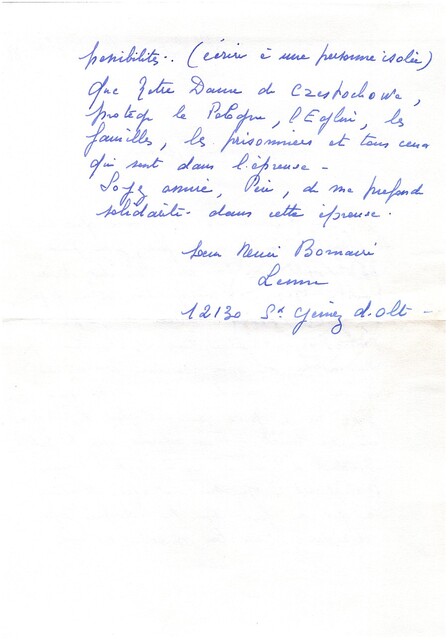 possibilités.. (écrire à une personne isolée)
Que Notre Dame de Czestochowa,
protège la Pologne, l'Eglise, les
familles, les prisonniers et tous ceux
qui sont dans l'épreuve -
Soyez assuré, Père, de ma profonde
solidarité dans cette épreuve.
Henri
12130 St Geniez d'Olt -